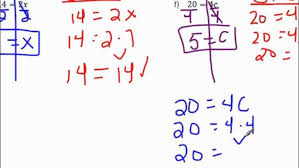 14 = 2x
14 = 2·7
14 = 14 ✓
2 2
= x
f) 20 = 4c
4 4
5 = c
20 =
20 = 4
20 =
20 = 4c
20 = 4·4
20 =